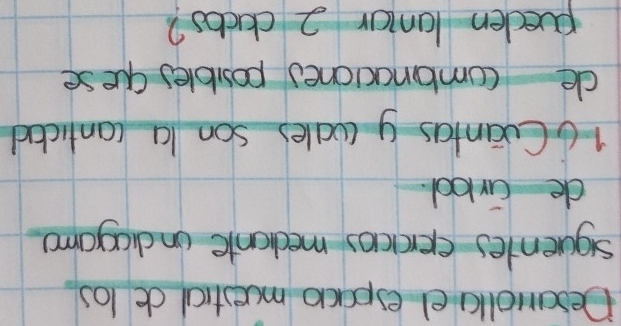 Desarrolla el espacio muestral de los
siguientes ejercicios mediante un diagama
de árbol.
1¿Cuántas y cuales son la cantidad
de combinaciones posibles que se
pueden lanzar 2 dados?